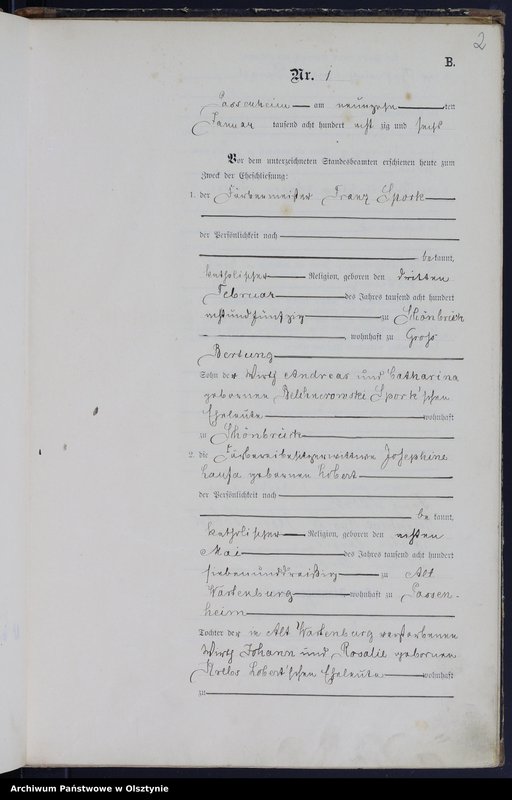 2
B.
Nr. 1
Passenheim am neunzehnten
Januar tausend acht hundert achtzig und sechs
Vor dem unterzeichneten Standesbeamten erschienen heute zum
Zweck der Eheschließung:
1. der Färbermeister Franz Spork
der Persönlichkeit nach
bekannt,
katholischer Religion, geboren den dritten
Februar des Jahres tausend acht hundert
achtundfünfzig zu Schönbrück
, wohnhaft zu Groß
Bertung
Sohn der Wirth Andreas und Catharina
gebornen Spork'schen
Eheleute wohnhaft
zu Schönbrück
2. die Färbereibesitzerwittwe Josephine
geborenen Lobert
der Persönlichkeit nach
bekannt,
katholischer Religion, geboren den achten
Mai des Jahres tausend acht hundert
siebenunddreißig zu Alt
Wartenburg wohnhaft zu Passen-
heim
Tochter der in Alt Wartenburg verstorbenen
Wirth Johann und Rosalie gebornen
Lobert'schen Eheleute wohnhaft
zu
Archiwum Państwowe w Olsztynie